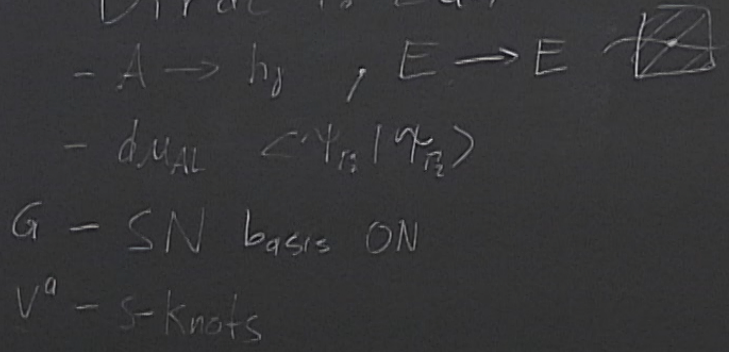 - A → hγ , E → E
- dμAL <ΨΓ1|ΨΓ2>
G - SN basis ON
Vᵃ - s-knots